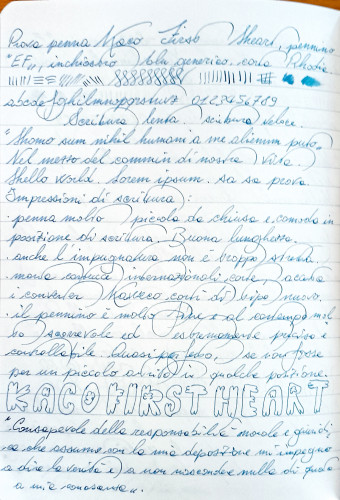 Prova penna Kaco First Heart, pennino
"EF", inchiostro blu generico, carta Rhodia
abcdefghilmnopqrstuvz 0123456789
Scrittura lenta. scrittura veloce.
"Homo sum nihil humani a me alienum puto"
Nel mezzo del cammin di nostra vita.
Hello world. Lorem ipsum. sa sa prova
Impressioni di scrittura:
· penna molto piccola da chiusa e comoda in
posizione di scrittura. Buona lunghezza.
· anche l'impugnatura non è troppo stretta.
· monta cartucce internazionali corte, accetta
i converter Kaweco corti di tipo nuovo.
· il pennino è molto fine e al contempo mol
to scorrevole ed estremamente preciso e
controllabile. Quasi perfetto, se non fosse
per un piccolo attrito in qualche posizione.
KACO FIRST HEART
"Consapevole della responsabilità morale e giuridi
ca che assumo con la mia deposizione mi impegno
a dire la verità e a non nascondere nulla di quanto
a mia conoscenza".